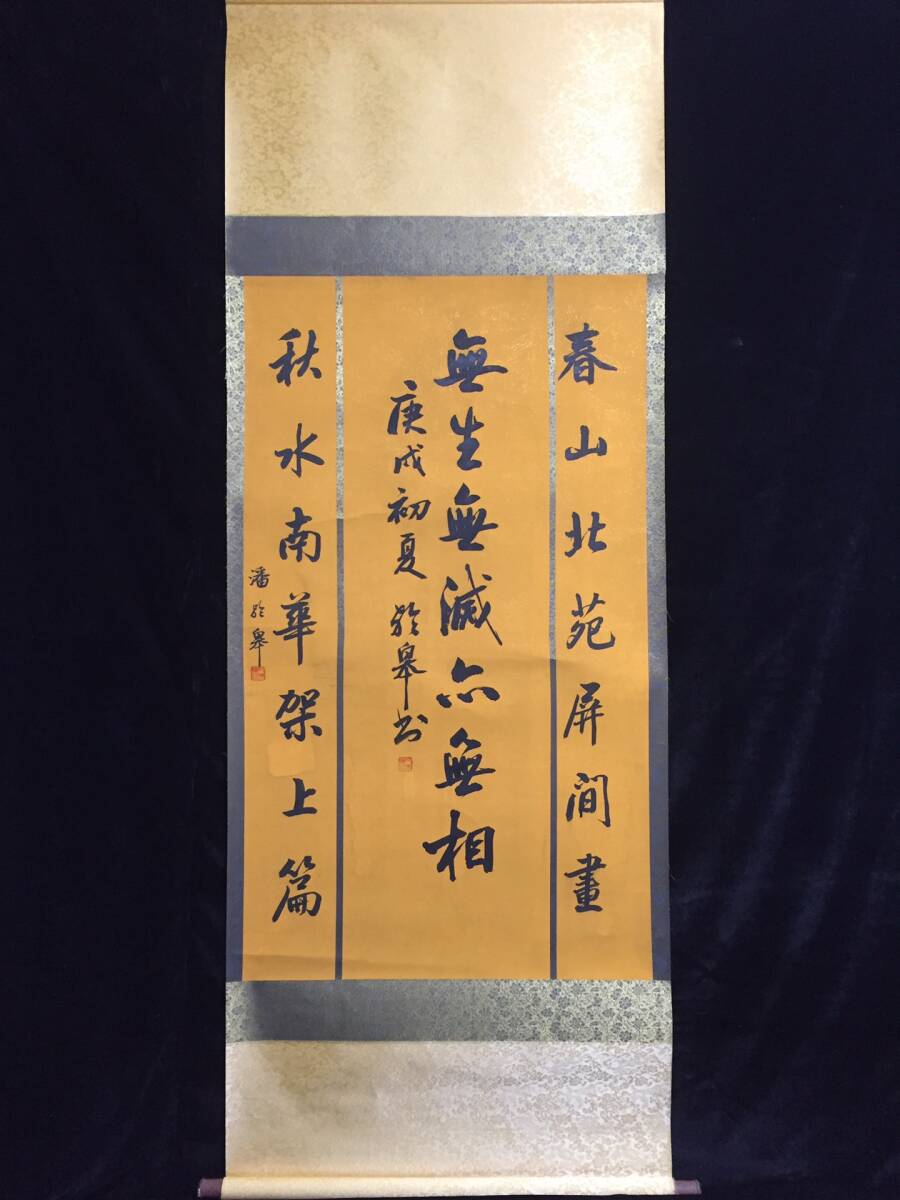 春山北苑屏間畫
無生無滅亦無相
庚戌初夏 齡皋书
秋水南華架上篇
潘齡皋